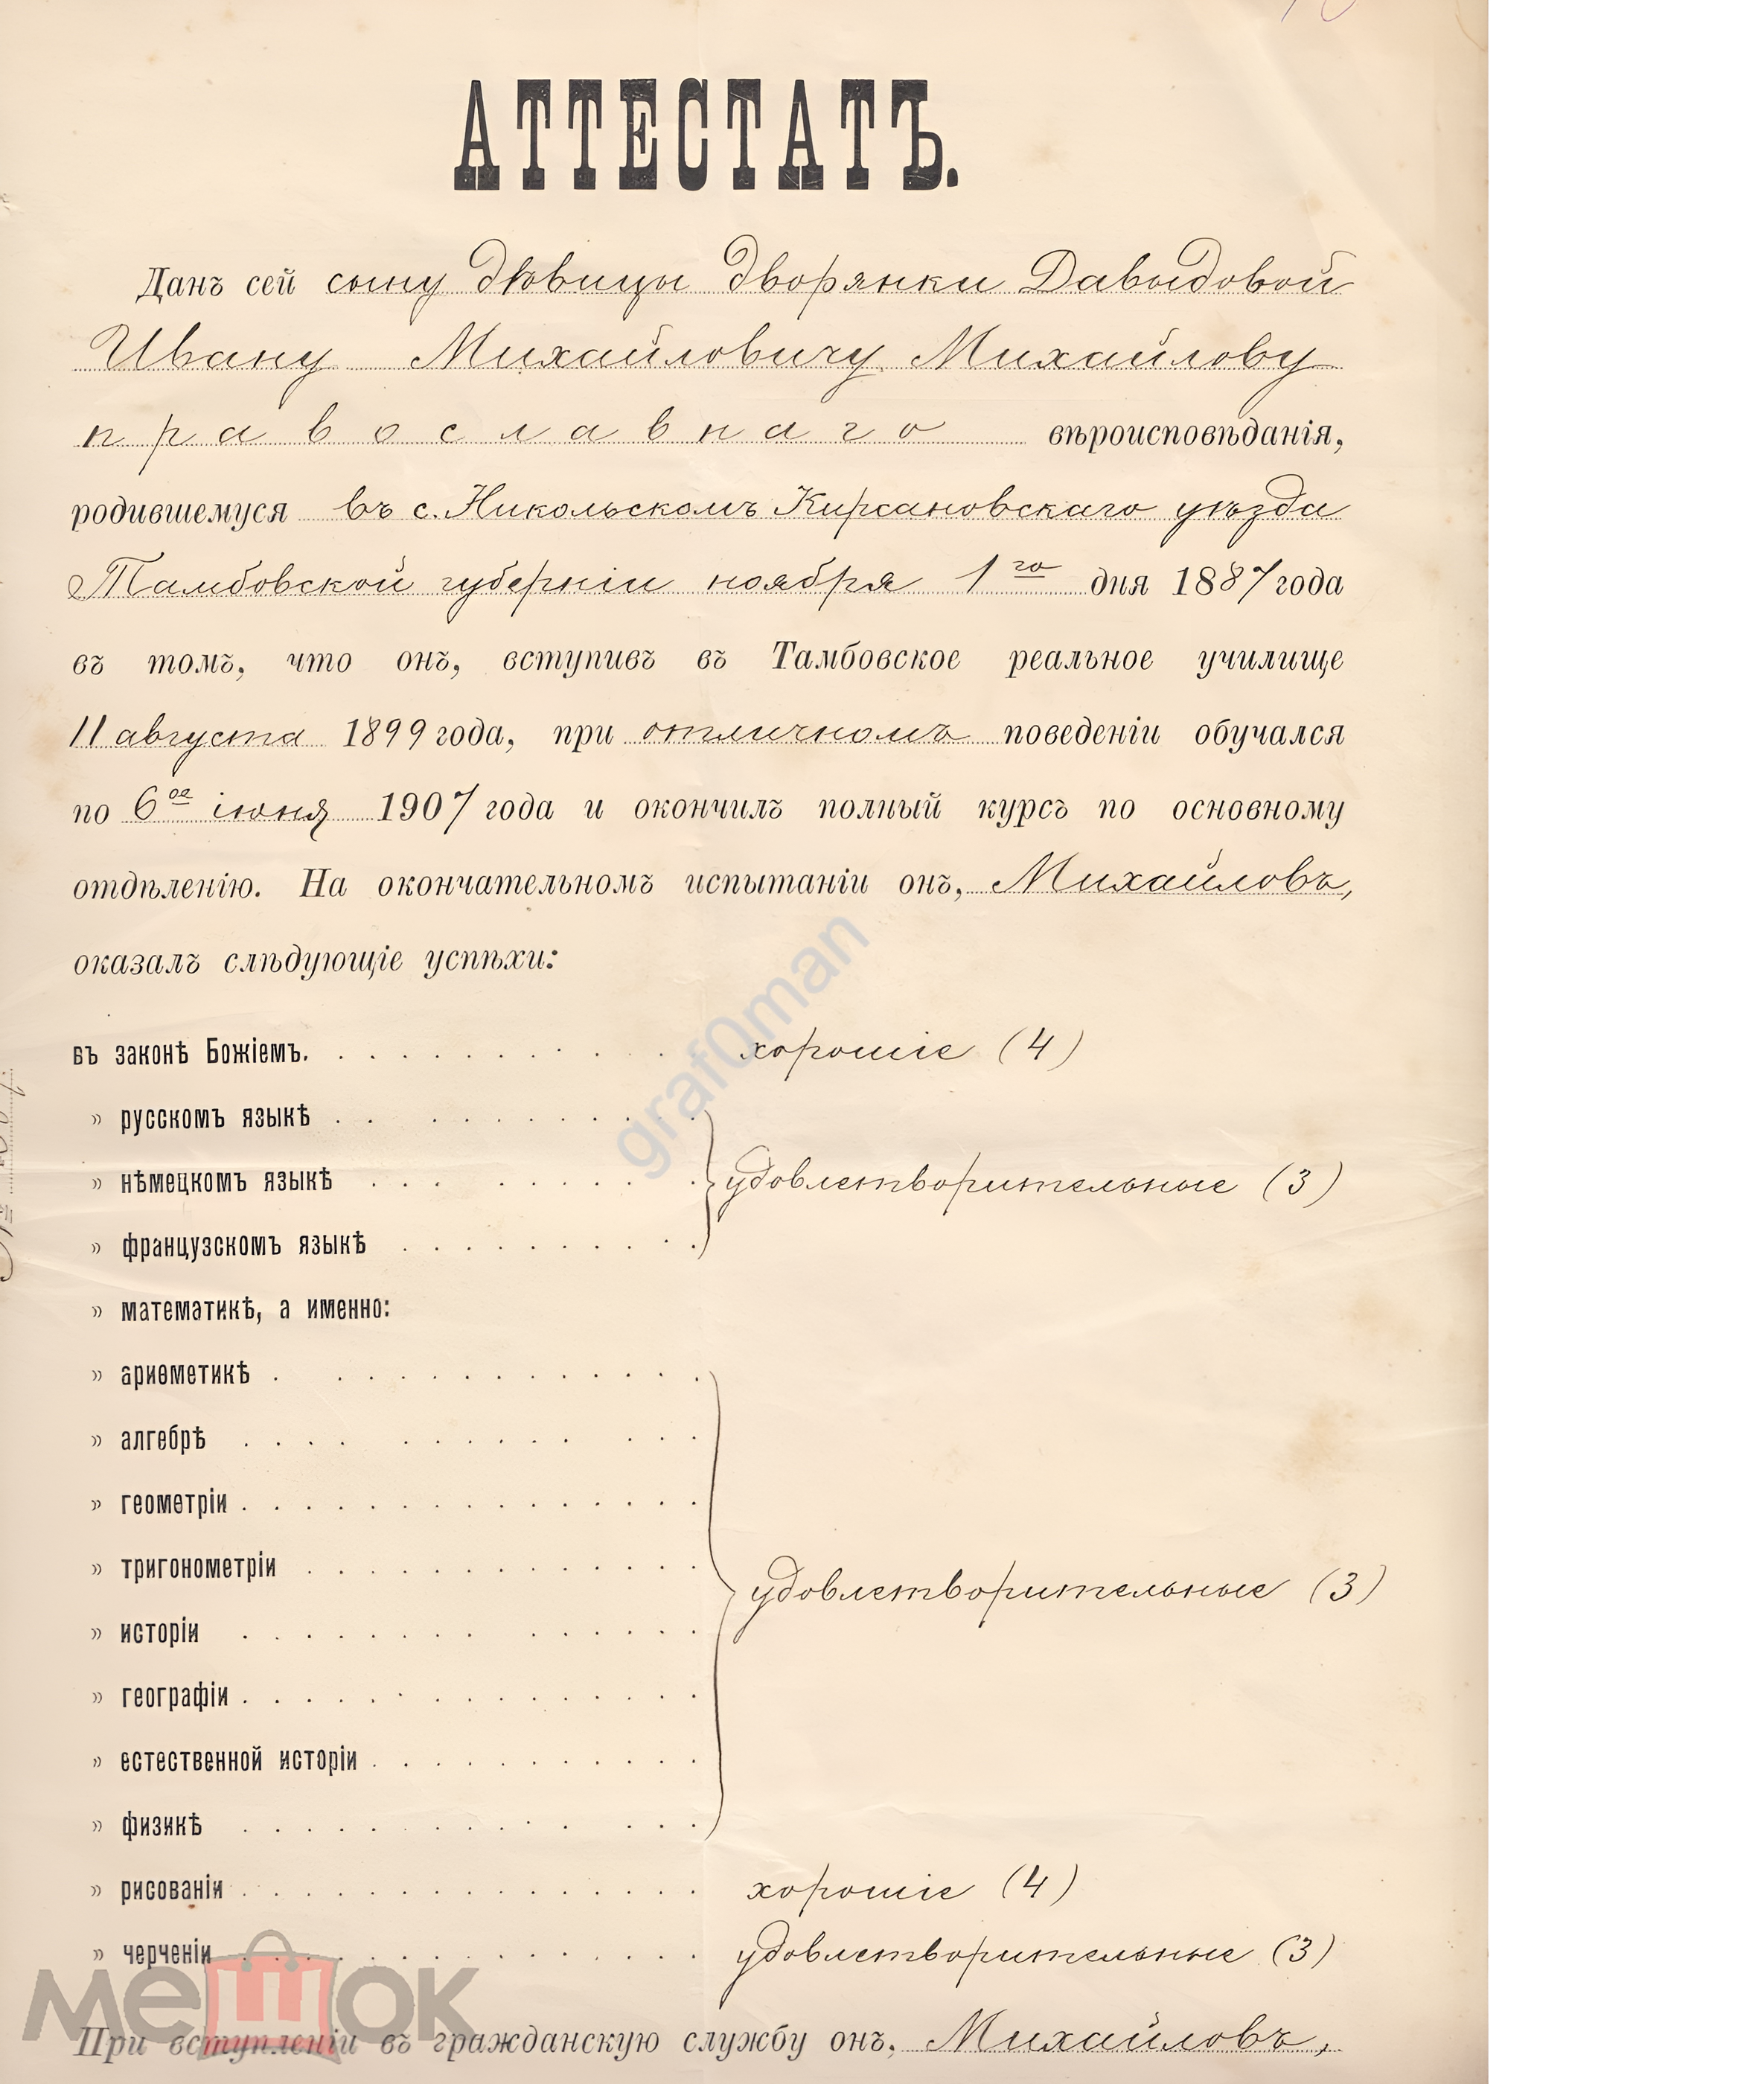 АТТЕСТАТЪ.
Данъ сей сыну дѣвицы дворянки Давыдовой
Ивану Михайловичу Михайлову
православнаго вѣроисповѣданія,
родившемуся въ с. Никольскомъ Кирсановскаго уѣзда
Тамбовской губерніи ноября 1го дня 1887 года
въ томъ, что онъ, вступивъ въ Тамбовское реальное училище
11 августа 1899 года, при отличномъ поведеніи обучался
по 6ое іюня 1907 года и окончилъ полный курсъ по основному
отдѣленію. На окончательномъ испытаніи онъ, Михайловъ,
оказалъ слѣдующіе успѣхи:
въ законѣ Божіемъ. . . . . . . . . . . . хорошіе (4)
» русскомъ языкѣ . . . . . . . . . .
» нѣмецкомъ языкѣ . . . . . . . . . удовлетворительные (3)
» французскомъ языкѣ . . . . . . . . . .
» математикѣ, а именно:
» ариѳметикѣ . . . . . . . . . . . . .
» алгебрѣ . . . . . . . . . . . . .
» геометріи . . . . . . . . . . . . . . .
» тригонометріи . . . . . . . . . . . . . удовлетворительные (3)
» исторіи . . . . . . . . . . . . . .
» географіи . . . . . . . . . . . . . . .
» естественной исторіи . . . . . . . . . . .
» физикѣ . . . . . . . . . . . . . .
» рисованіи . . . . . . . . . . . . . . . хорошіе (4)
» черченіи . . . . . . . . . . . . . . . удовлетворительные (3)
При вступленіи въ гражданскую службу онъ, Михайловъ,
graf0man
мешок